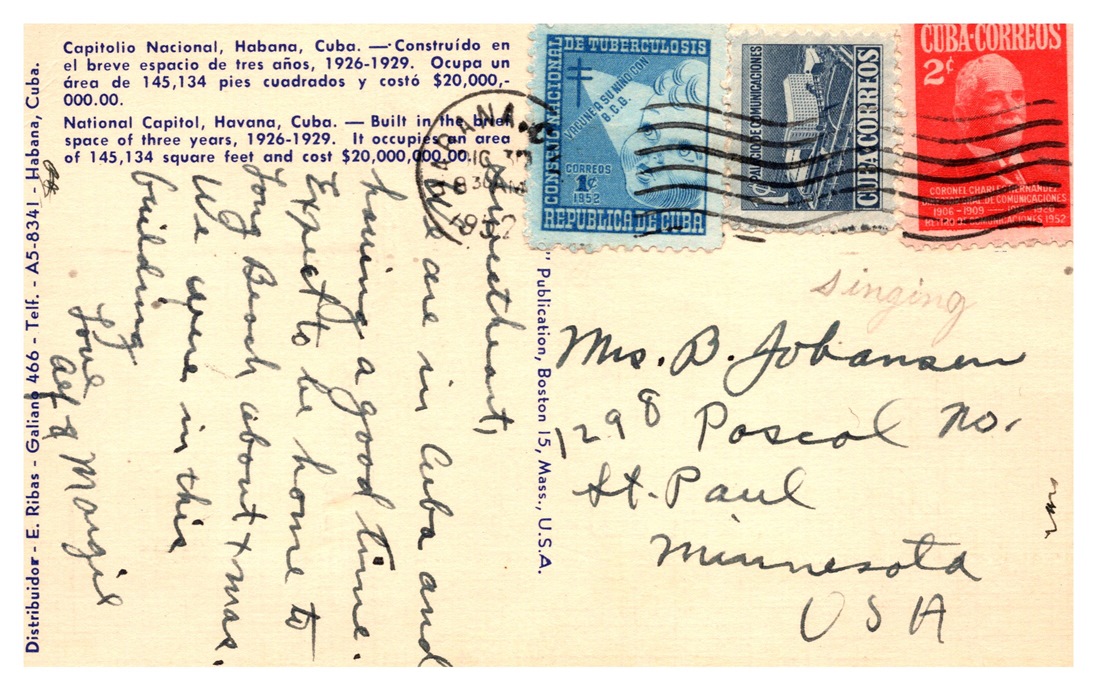 Capitolio Nacional, Habana, Cuba. — Construído en
el breve espacio de tres años, 1926-1929. Ocupa un
área de 145,134 pies cuadrados y costó $20,000,-
000.00.
National Capitol, Havana, Cuba. — Built in the brief
space of three years, 1926-1929. It occupies an area
of 145,134 square feet and cost $20,000,000.00.
Distribuidor - E. Ribas - Galiano 466 - Telf. - A5-8341 - Habana, Cuba.
" Publication, Boston 15, Mass., U.S.A.
HABANA
8 30 AM
1952
CONSEJO NACIONAL
DE TUBERCULOSIS
VACUNE A SU NIÑO CON
B.C.G.
CORREOS
1¢
1952
REPUBLICA DE CUBA
PALACIO DE COMUNICACIONES
1¢
CUBA CORREOS
CUBA·CORREOS
2¢
CORONEL CHARLES HERNÁNDEZ
DIRECTOR GENERAL DE COMUNICACIONES
1906 - 1909
RETIRO DE COMUNICACIONES 1952
Sweetheart,
We are in Cuba and
having a good time.
Expect to be home to
Long Beach about Xmas.
We were in this
building
Love
Alf & Margie
singing
Mrs. B. Johansen
1298 Pascal No.
St. Paul
Minnesota
USA